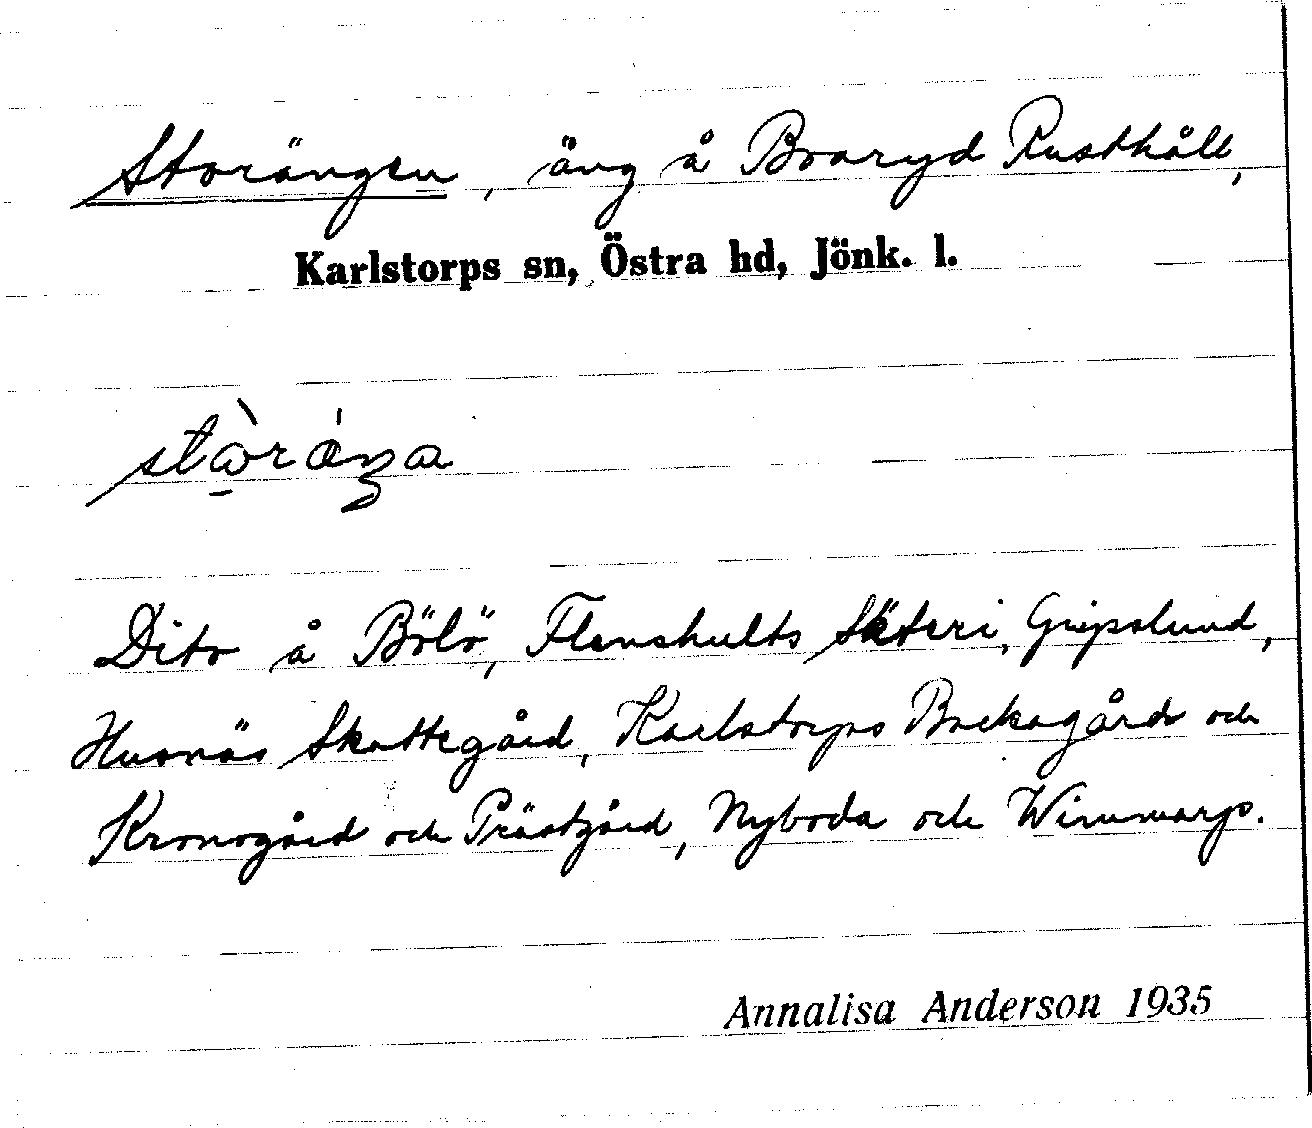 Storängen, äng å Boaryd Rusthåll,
Karlstorps sn, Östra hd, Jönk. l.
Dito å Bölö, Flenshults Säteri, Gripslund,
Husnäs Skattegård, Karlstorps Backagård och
Kronogård och Prästgård, Nyboda och Wimmarp.
Annalisa Anderson 1935